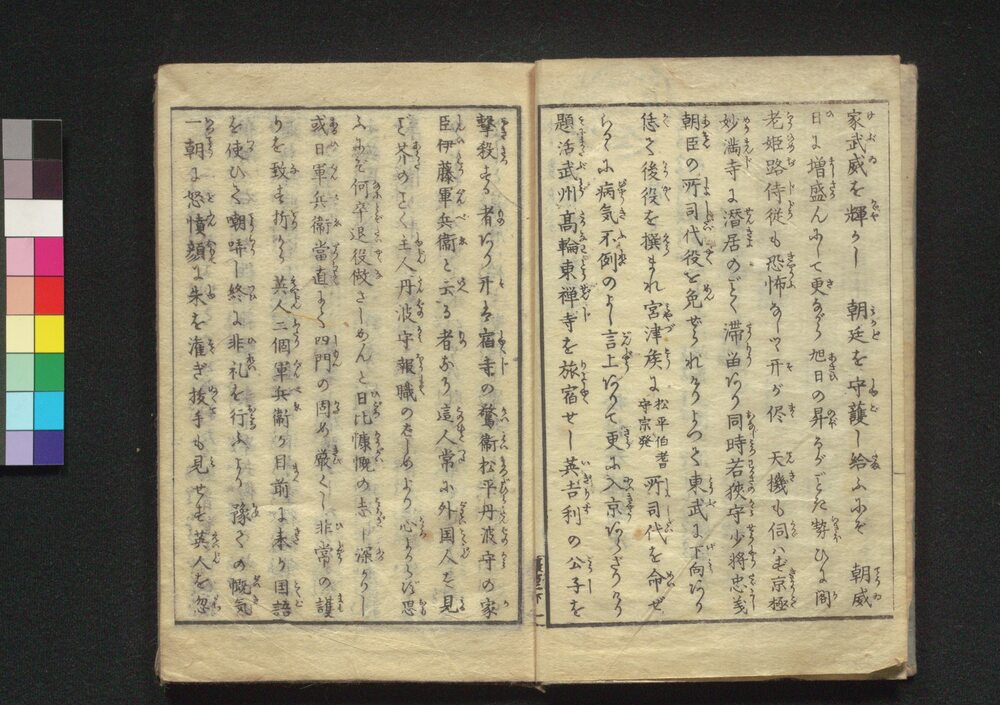 家武威を輝かし 朝廷を守護し給ふにぞ 朝威
日に増盛んにして更ながら旭日の昇るがごとき勢ひに閣
老姫路侍従も恐怖なしつ其が侭 天機も伺はず京極
妙満寺に潜居のごとく滞留ありか同時若狭守少将忠義
朝臣の所司代役を免ぜられけるよつて東武に下向あり
偖て後役を撰まれ宮津族に松平伯耆守宗発所司代を命ぜ
らるに病気不例のよし言上ありて更に入京あらざりける
題活武州高輪東禅寺を旅宿せし英吉利の公子を
撃殺する者あり其は宿寺の警衛松平丹波守の家
臣伊藤軍兵衛と云る者なり這人常に外国人を見
こと芥のごとく主人丹波守報職のはじめより心よからず思
ふにぞ何卒退役做さしめんと日比慷慨の志し深かりし
或日軍兵衛當直にて四門の固め厳しく非常の護
りを致す折から異人二個軍兵衛が目前に来り国語
を使ひて嘲哢し終に非礼を行ふより豫ての慨気
一朝に怒憤顔に朱を濯ぎ抜手も見せず英人を忽